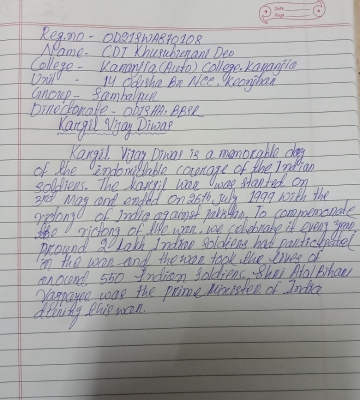 Date
Page
Reg.no - OD21SWA870208
Name - CDT Khusuburani Deo
College - Karanjia (Auto) College, Karanjia
Unit - 14 Odisha Bn NCC, Keonjhar
Group - Sambalpur
Directorate - ODISHA, BBSR
Kargil Vijay Diwas
Kargil Vijay Diwas is a memorable day
of the indomitable courage of the Indian
Soldiers. The kargil war was started on
3rd May and ended on 26th July 1999 with the
victory of India against pakistan, To commemorate
the victory of the war, we celebrate it every year,
Around 2 Lakh Indian soldiers had participated
in the war and the war took the lives of
around 550 Indian soldiers, Shri Atal Bihari
Vajpayee was the prime Minister of India
during this war.